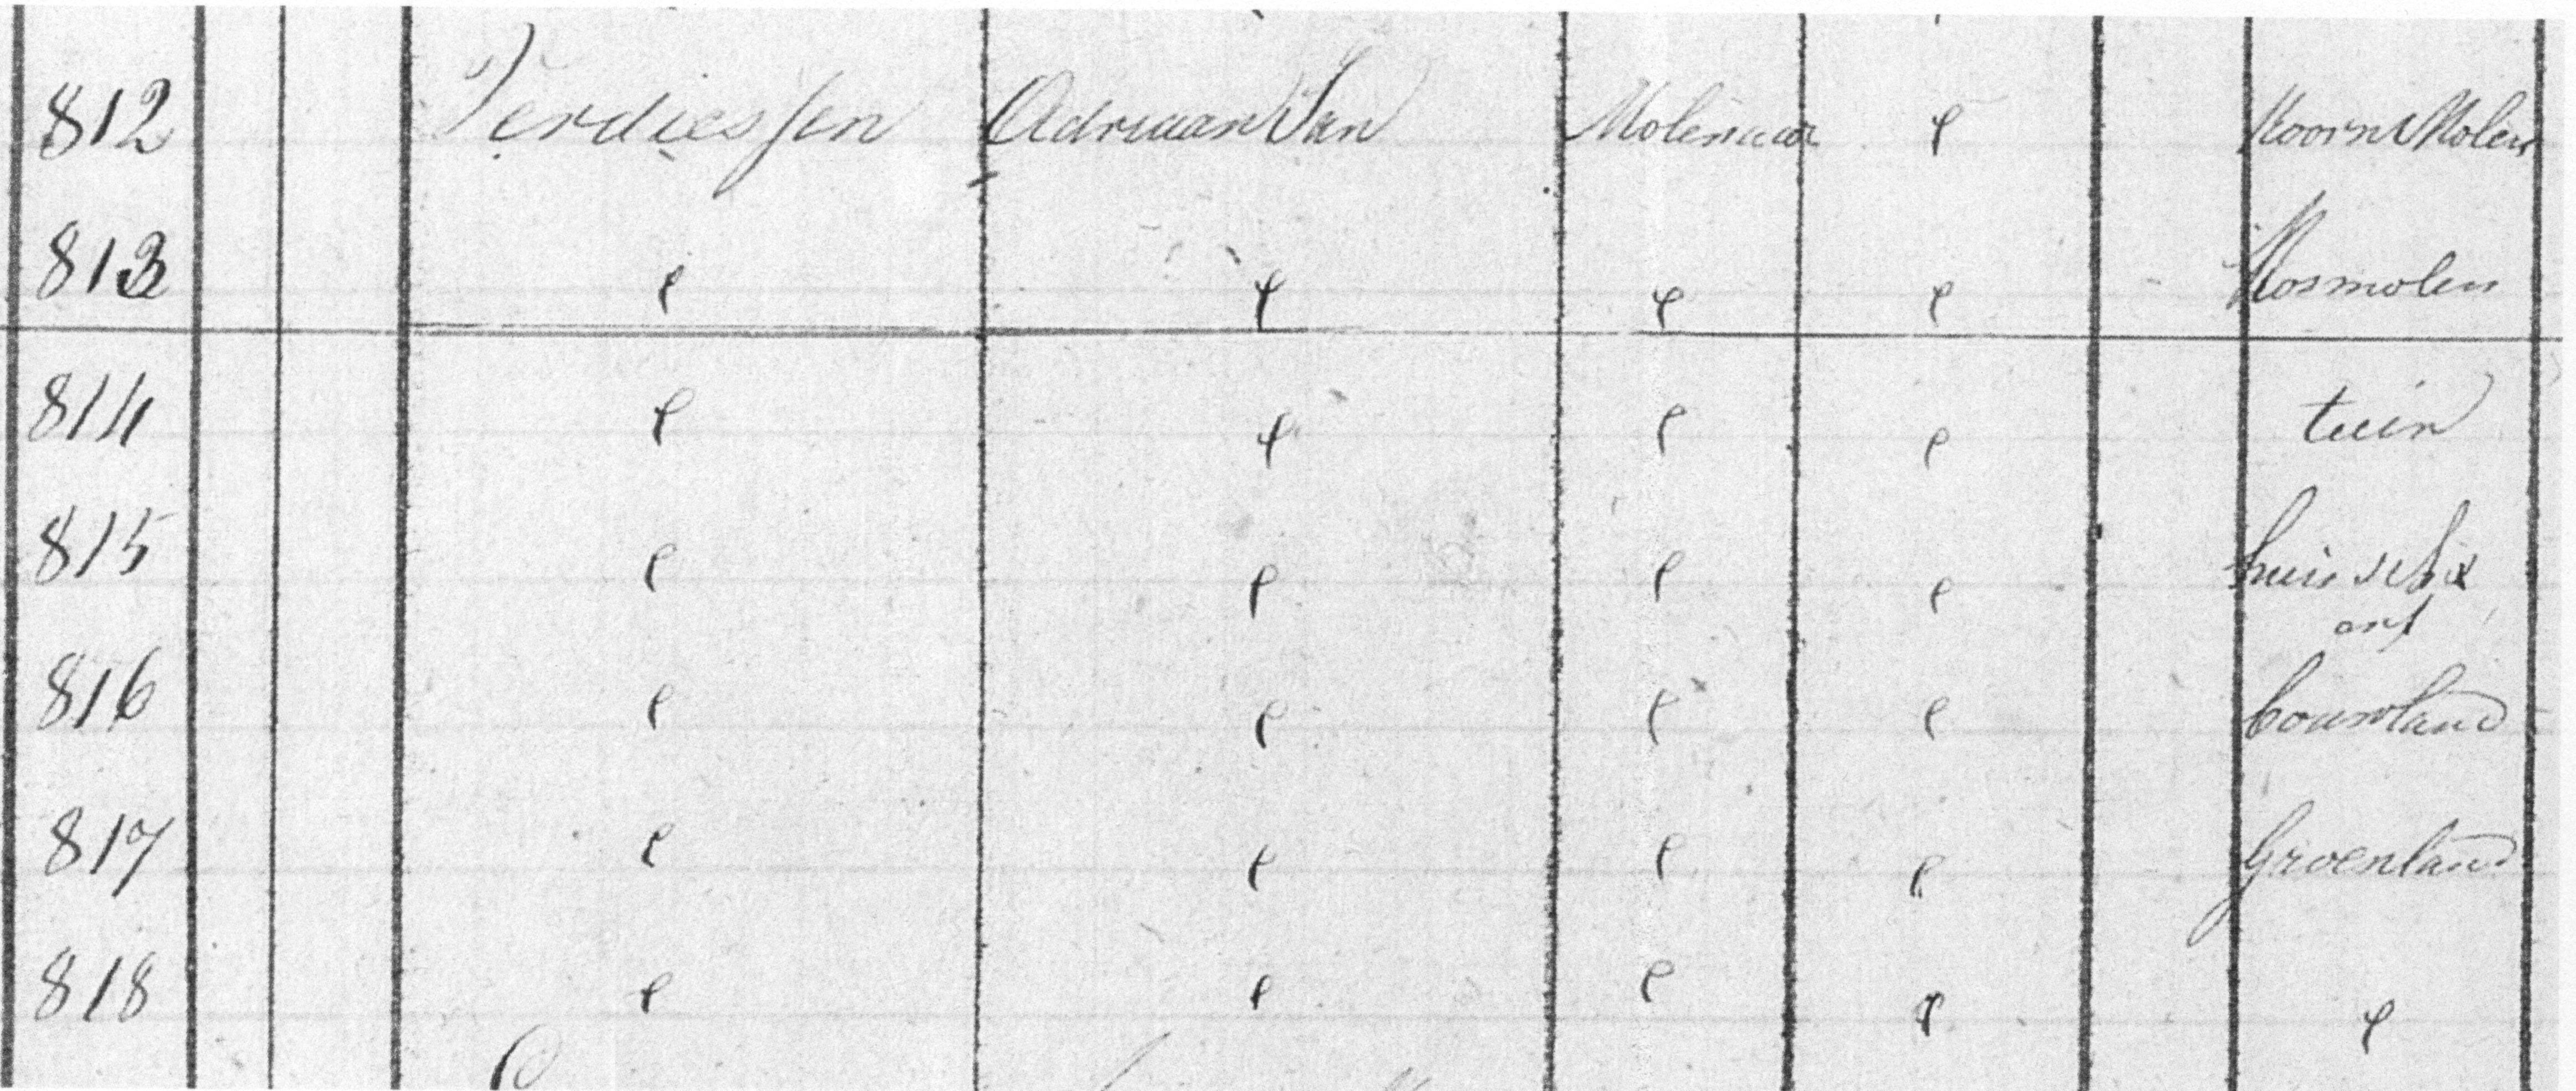 812 Verdiessen Adriaan Jan Molenaar " Koorn Molen
813 " " " " Rosmolen
814 " " " " tuin
815 " " " " huis sch &
erf
816 " " " " bouwland
817 " " " " Groenland
818 " " " " "